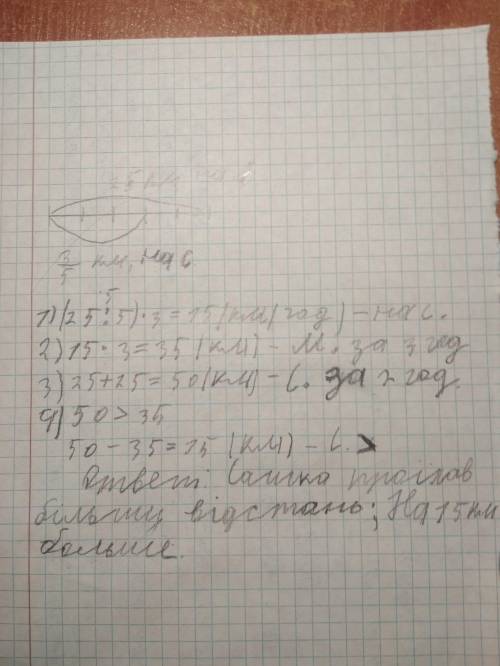 25 км
3/5 км, на С
5
1) (25:5)·3=15(км/год) – на С.
2) 15·3=35 (км) – М. за 3 год
3) 25+25=50(км) – С. за 2 год.
4) 50>35
50-35=15 (км) – С. >
Ответ: Сашка проїхав
більшу відстань; На 15 км
больше.